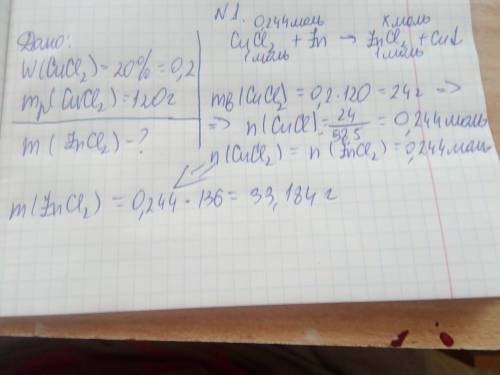 N1.
Дано:
W(CuCl₂)=20%=0,2
mр(CuCl₂)=120г
m(ZnCl₂)-?
0,244моль x моль
CuCl₂ + Zn → ZnCl₂ + Cu↓
1моль 1моль
mв(CuCl₂)=0,2·120=24г =>
=> n(CuCl)=24/98,5=0,244моль
n(CuCl₂)=n(ZnCl₂)=0,244моль
m(ZnCl₂)=0,244·136=33,184г